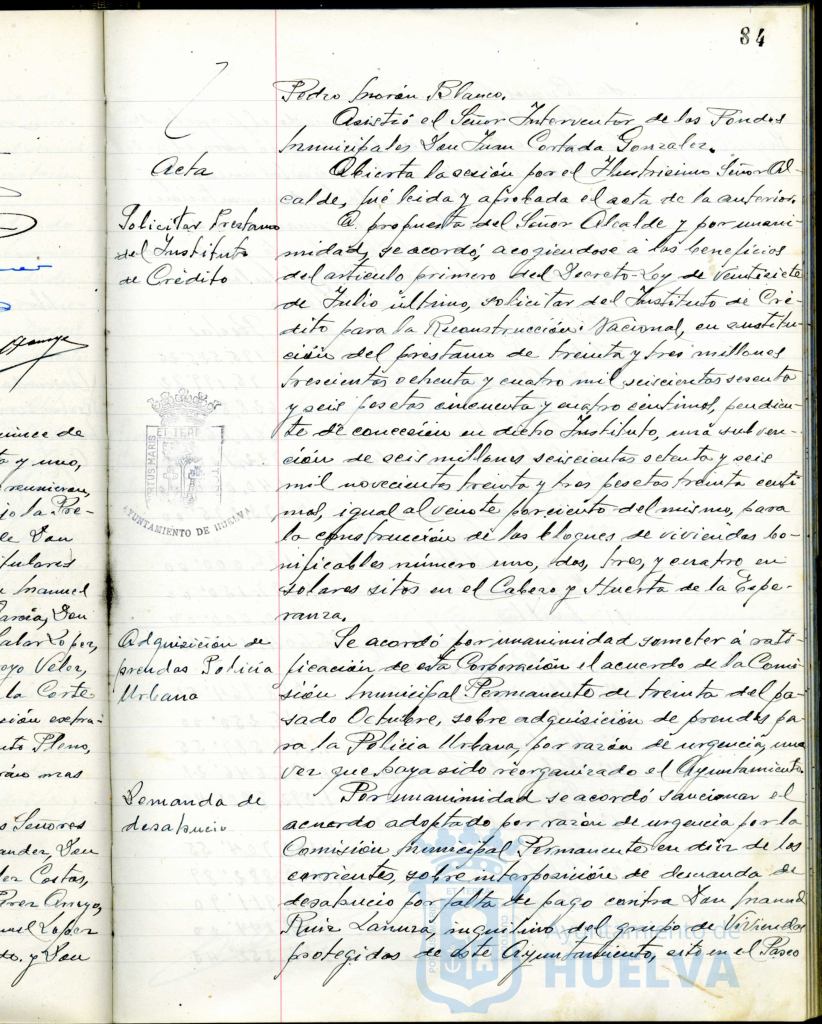 84
Pedro Morón Blanco.
Asistió el Señor Interventor de los Fondos
Municipales Don Juan Cortada Gonzalez.
Acta
Abierta la sesión por el Ilustrisimo Señor Al-
calde, fué leida y aprobada el acta de la anterior.
Solicitar Prestamo
del Instituto
de Crédito
A propuesta del Señor Alcalde y por unani-
midad, se acordó, acogiendose á los beneficios
del articulo primero del Decreto-Ley de Veintisiete
de Julio último, solicitar del Instituto de Cré-
dito para la Reconstrucción Nacional, en sustitu-
ción del préstamo de treinta y tres millones
trescientas ochenta y cuatro mil seiscientas sesenta
y seis pesetas cincuenta y cuatro centimos, pendien-
te de concesión en dicho Instituto, una subven-
ción de seis millones seiscientas setenta y seis
mil novecientas treinta y tres pesetas treinta centi-
mos, igual al veinte por ciento del mismo, para
la construcción de los bloques de viviendas bo-
nificables número uno, dos, tres, y cuatro en
solares sitos en el Cabezo y Huerta de la Espe-
ranza.
Adquisición de
prendas Policía
Urbana
Se acordó por unanimidad someter á rati-
ficación de esta Corporación el acuerdo de la Comi-
sión Municipal Permanente de treinta del pa-
sado Octubre, sobre adquisición de prendas pa-
ra la Policia Urbana, por razón de urgencia, una
vez que haya sido reorganizado el Ayuntamiento.
Demanda de
desahucio
Por unanimidad se acordó sancionar el
acuerdo adoptado por razón de urgencia por la
Comisión Municipal Permanente en diez de los
corrientes, sobre interposición de demanda de
desahucio por falta de pago contra Don Manuel
Ruiz Lanuza, inquilino del grupo de Viviendas
protegidas de este Ayuntamiento, sito en el Paseo
AYUNTAMIENTO DE HUELVA
Ayuntamiento de
HUELVA
uince de
ta y uno,
reunieron,
jo la Pre-
de Don
itulares
n Manuel
García, Don
alar Lopez,
oyo Velez,
la Corte
ción extra-
nto Pleno,
s Señores
ander, Don
Costas,
Perez Amoyo,
nuel Lopez
do. y Don